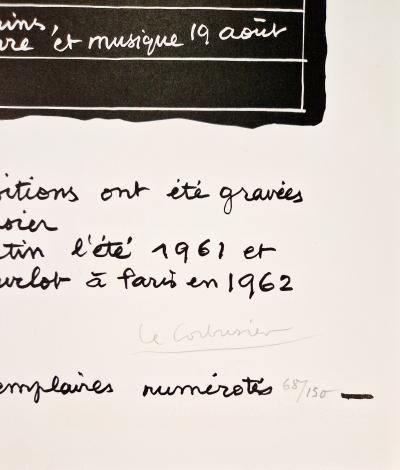 ins,
re et musique 19 août
sitions ont été gravées
sier
tin l'été 1961 et
velot à Paris en 1962
Le Corbusier
emplaires numérotés 68/150